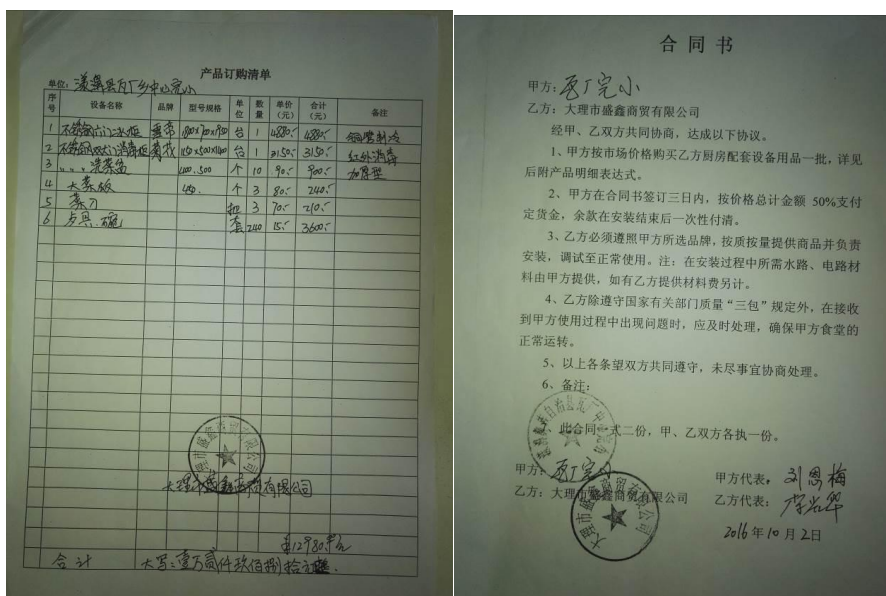 产品订购清单
单位：漾濞县瓦厂乡中心完小
序号 设备名称 品牌 型号规格 单位 数量 单价（元） 合计（元） 备注
1 不锈钢六门冰柜 台 1 4880.- 4880.- 铜管制冷
2 台 1 3150.- 3150.- 红外消毒
3 洗菜盆 500 个 10 90.- 900.- 加厚型
4 大菜板 450. 个 3 80.- 240.-
5 菜刀 把 3 70.- 210.-
6 套 240 15.- 3600.-
大理市盛鑫商贸有限公司
大理市盛鑫商贸有限公司
12980
合计 大写：壹万贰仟玖佰捌拾元整.
合同书
甲方：瓦厂完小
乙方：大理市盛鑫商贸有限公司
经甲、乙双方共同协商，达成以下协议。
1、甲方按市场价格购买乙方厨房配套设备用品一批，详见
后附产品明细表达式。
2、甲方在合同书签订三日内，按价格总计金额 50%支付
定货金，余款在安装结束后一次性付清。
3、乙方必须遵照甲方所选品牌，按质按量提供商品并负责
安装，调试至正常使用。注：在安装过程中所需水路、电路材
料由甲方提供，如有乙方提供材料费另计。
4、乙方除遵守国家有关部门质量“三包”规定外，在接收
到甲方使用过程中出现问题时，应及时处理，确保甲方食堂的
正常运转。
5、以上各条望双方共同遵守，未尽事宜协商处理。
6、备注：
此合同一式二份，甲、乙双方各执一份。
甲方：瓦厂完小 甲方代表：刘恩梅
乙方：大理市盛鑫商贸有限公司 乙方代表：
大理市盛鑫商贸有限公司
2016年10月2日